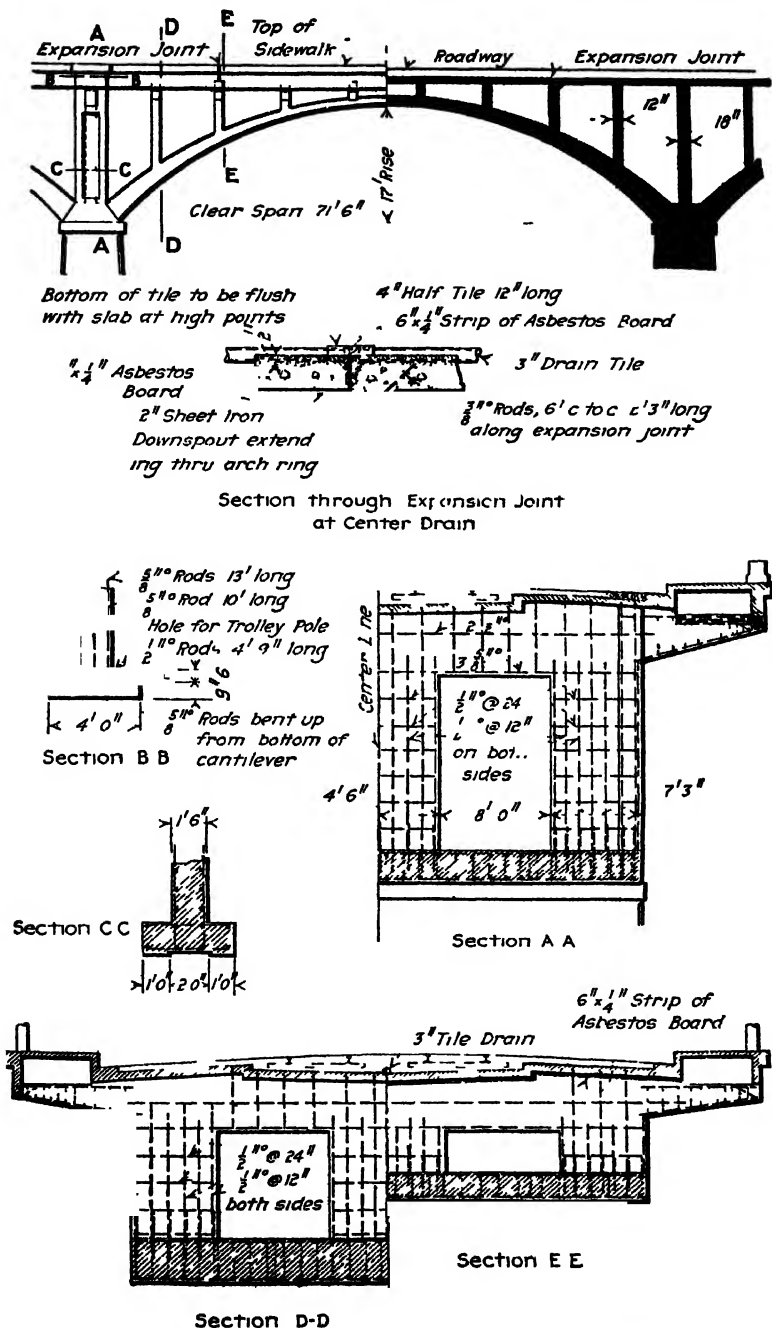 A
D
E
Top of
Sidewalk
Expansion Joint
Roadway
Expansion Joint
B
B
12"
18"
C
C
E
17' Rise
Clear Span 71'6"
A
D
Bottom of tile to be flush
with slab at high points
4" Half Tile 12" long
6"x1/4" Strip of Asbestos Board
3" Drain Tile
"x1/4" Asbestos
Board
2" Sheet Iron
Downspout extend
ing thru arch ring
3/8"° Rods, 6' c to c '3" long
along expansion joint
Section through Expansion Joint
at Center Drain
5/8"° Rods 13' long
5/8"° Rod 10' long
Hole for Trolley Pole
1/2"° Rods 4' 9" long
9" 6
5/8"° Rods bent up
from bottom of
cantilever
4'0"
Section BB
Center Line
3 5/8"°
1/2"° @ 24
@ 12"
on
sides
4'6"
8'0"
7'3"
Section AA
1'6"
Section CC
1'0" 20" 1'0"
6"x1/4" Strip of
Asbestos Board
3" Tile Drain
1/2"° @ 24"
1/2"° @ 12"
both sides
Section EE
Section D-D